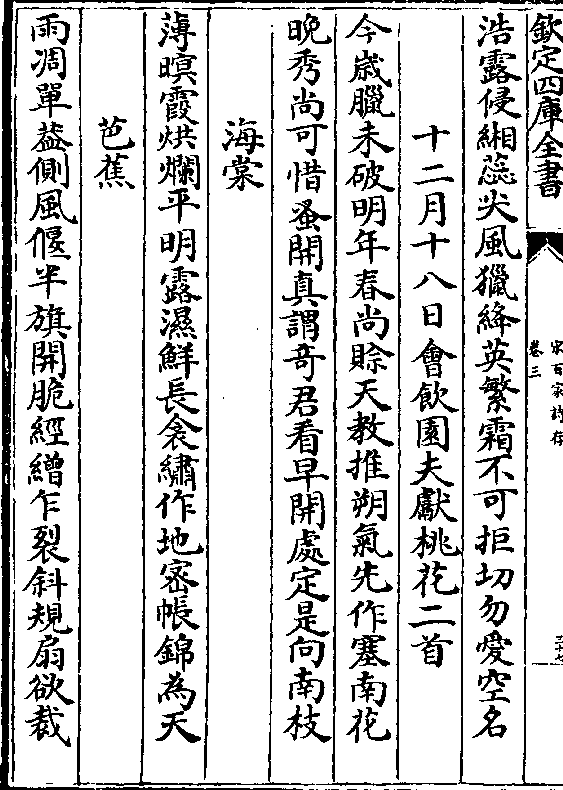 欽定四庫全書
宋百家詩存
卷三
浩露侵緗蕊尖風獵絳英繁霜不可拒切勿愛空名
十二月十八日會飲園夫獻桃花二首
今嵗臘未破明年春尚賒天教推朔氣先作塞南花
晩秀尚可惜蚤開真謂奇君看早開處定是向南枝
海棠
薄暝霞烘爛平明露濕鮮長衾繡作地密帳錦為天
芭蕉
雨凋單葢側風偃半旗開脆經繒乍裂斜規扇欲裁